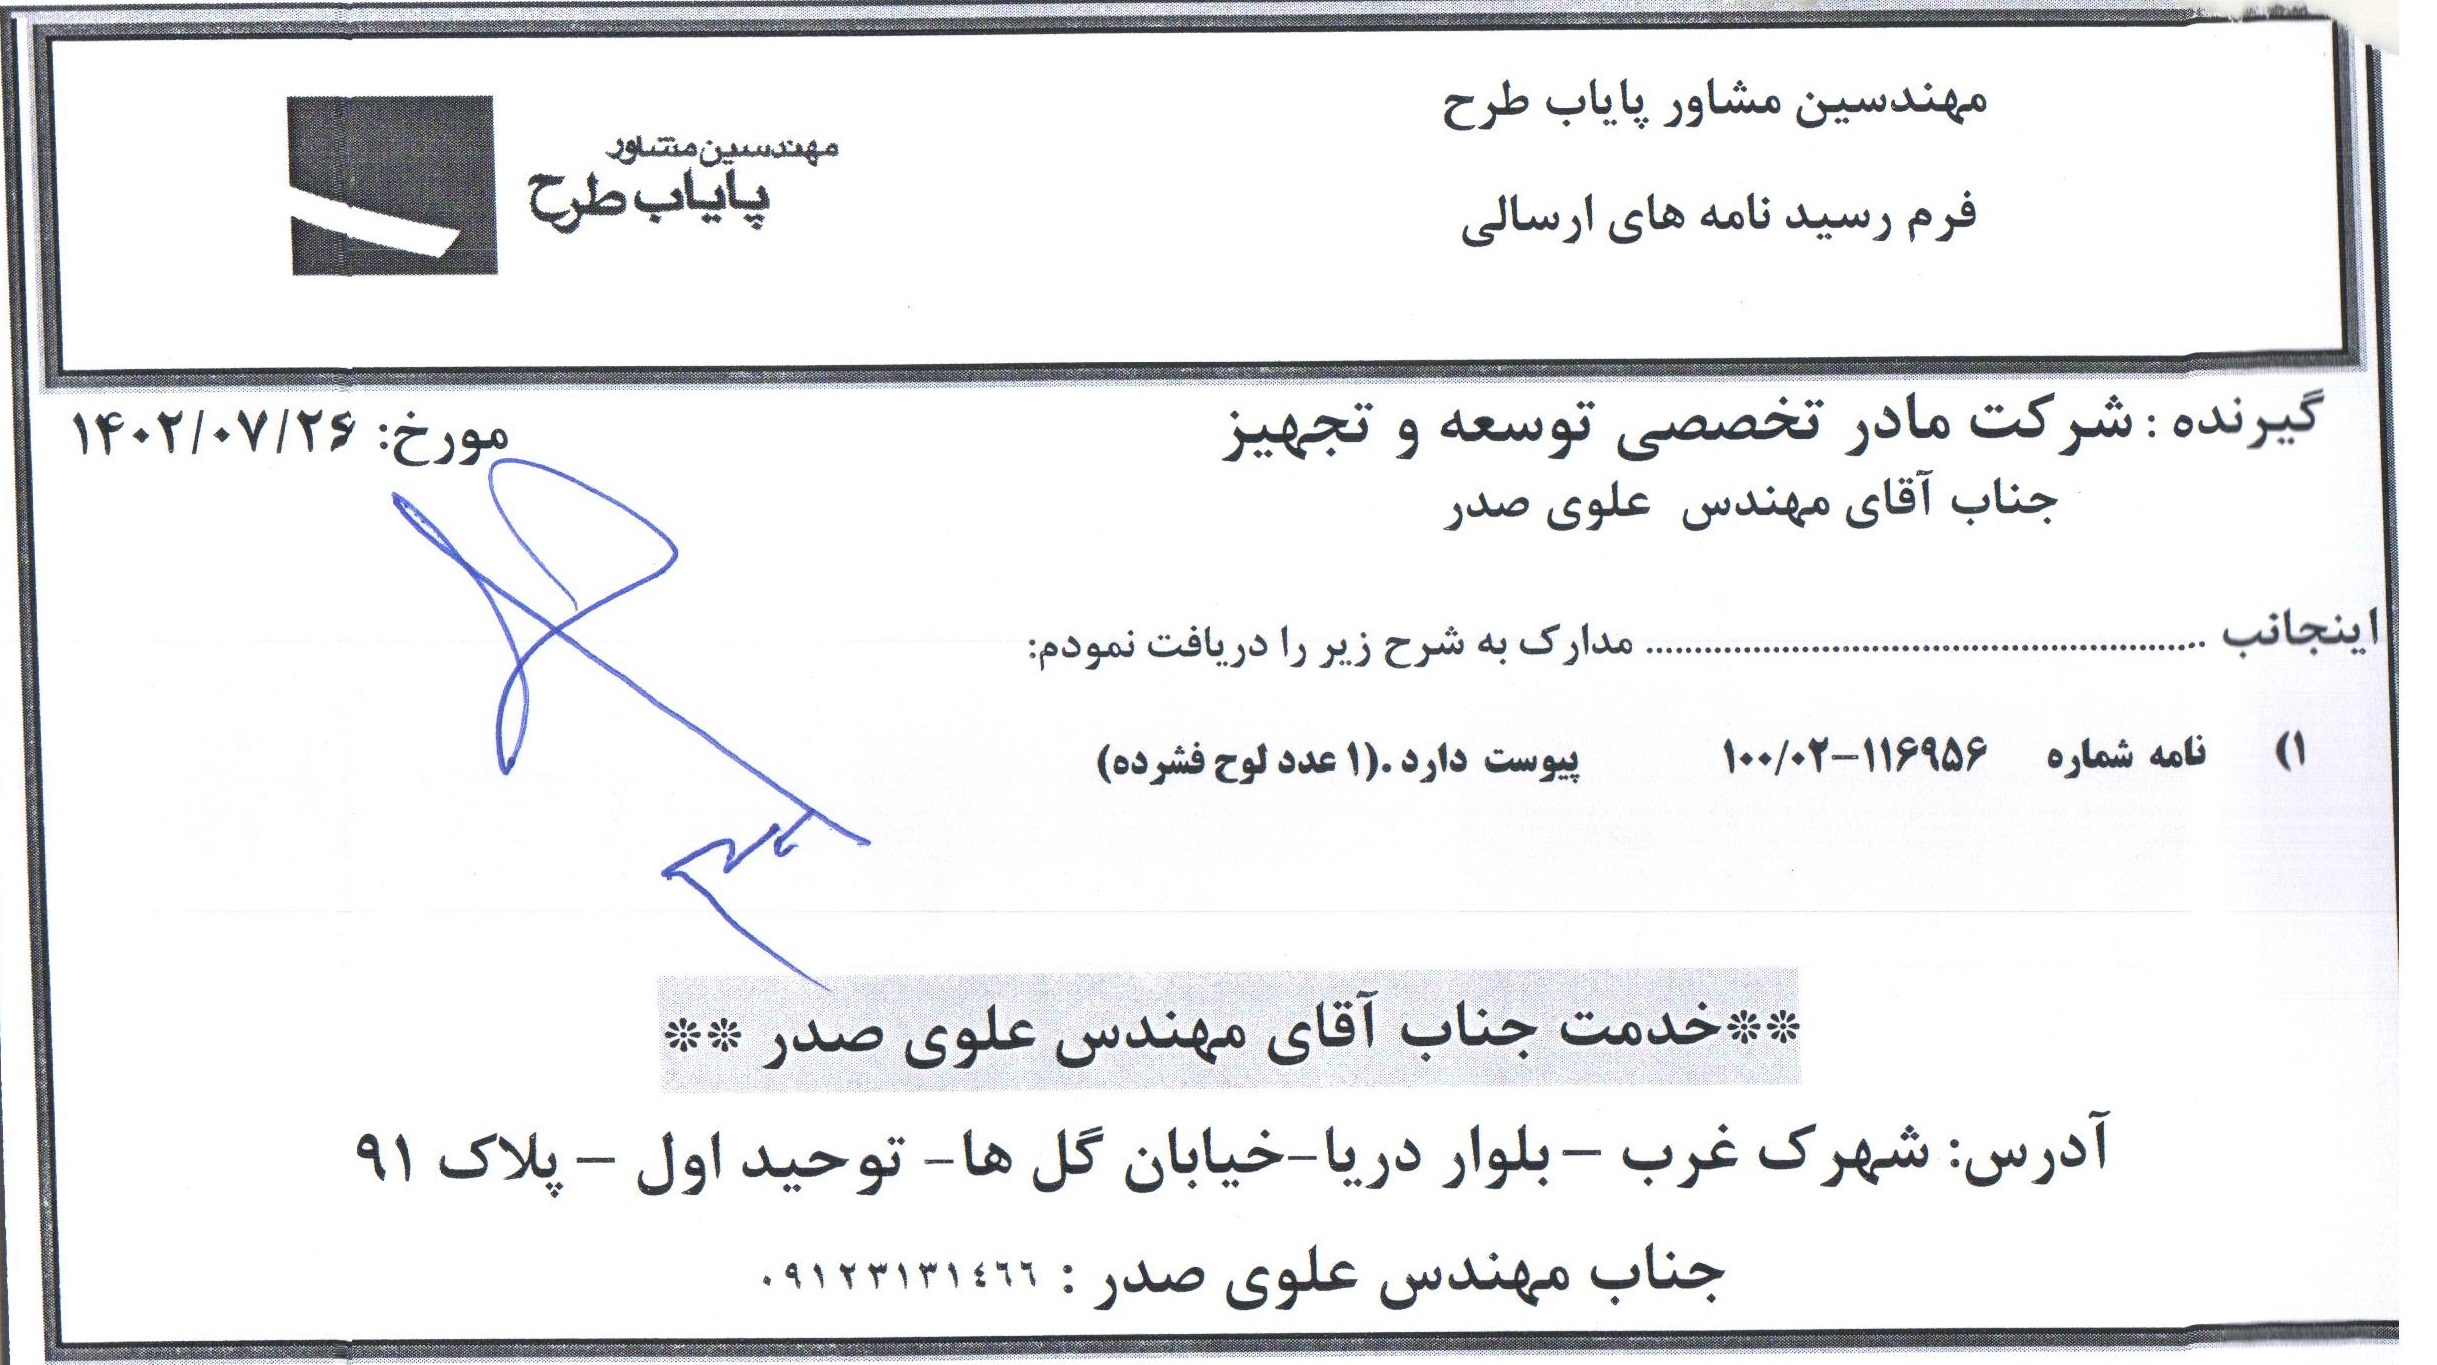 مهندسین مشاور پایاب طرح
مهندسین مشاور
پایاب طرح
فرم رسید نامه های ارسالی
گیرنده : شرکت مادر تخصصی توسعه و تجهیز
مورخ: ۱۴۰۲/۰۷/۲۶
جناب آقای مهندس علوی صدر
اینجانب ........................................................ مدارک به شرح زیر را دریافت نمودم:
۱) نامه شماره ۱۰۰/۰۲-۱۱۶۹۵۶ پیوست دارد .(۱ عدد لوح فشرده)
**خدمت جناب آقای مهندس علوی صدر **
آدرس: شهرک غرب – بلوار دریا-خیابان گل ها- توحید اول – پلاک ۹۱
جناب مهندس علوی صدر : ۰۹۱۲۳۱۳۱٤٦٦